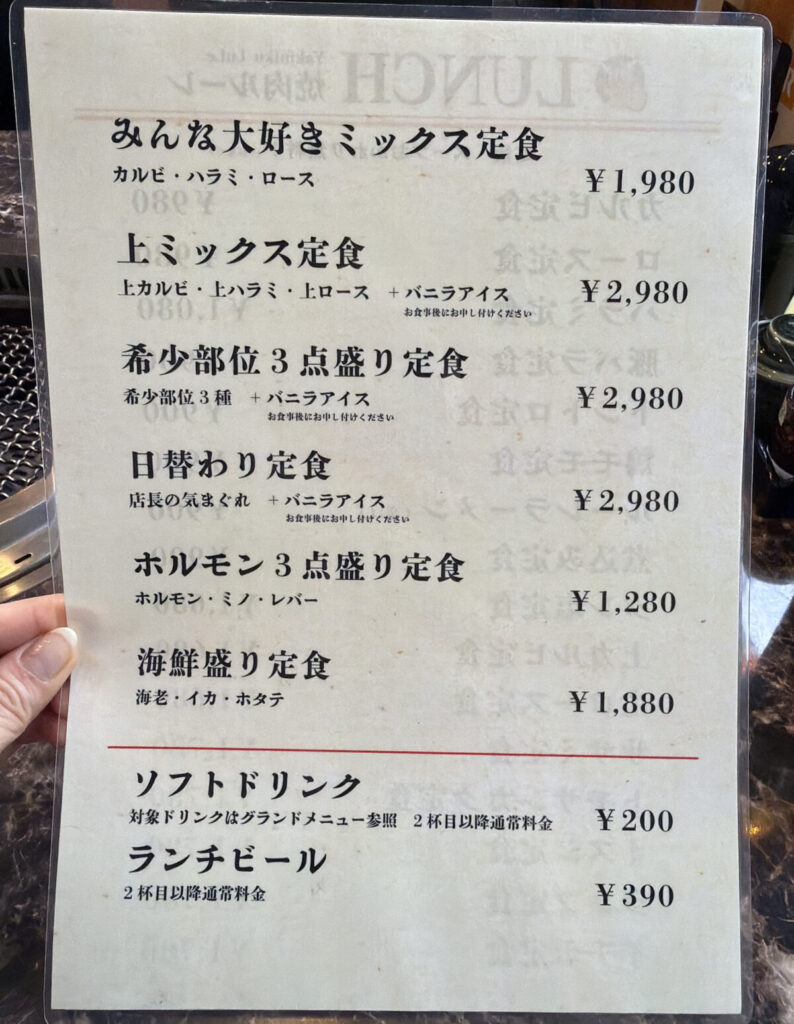 みんな大好きミックス定食
カルビ・ハラミ・ロース ¥1,980
上ミックス定食
上カルビ・上ハラミ・上ロース +バニラアイス ¥2,980
お食事後にお申し付けください
希少部位3点盛り定食
希少部位3種 +バニラアイス ¥2,980
お食事後にお申し付けください
日替わり定食
店長の気まぐれ +バニラアイス ¥2,980
お食事後にお申し付けください
ホルモン3点盛り定食
ホルモン・ミノ・レバー ¥1,280
海鮮盛り定食
海老・イカ・ホタテ ¥1,880
ソフトドリンク
対象ドリンクはグランドメニュー参照 2杯目以降通常料金 ¥200
ランチビール
2杯目以降通常料金 ¥390